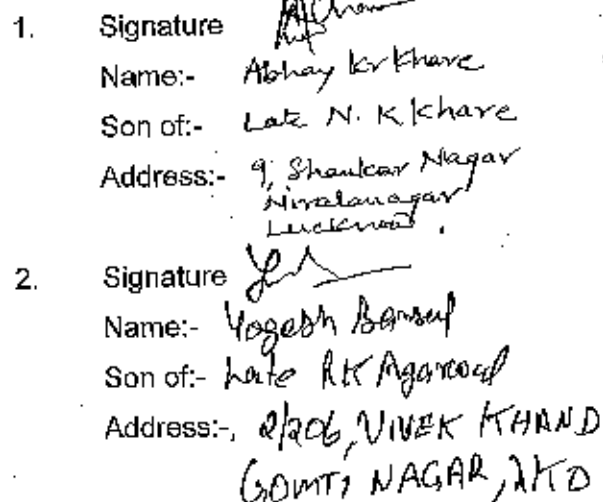 1. Signature
Name:- Abhay kr Khare
Son of:- Late N. K Khare
Address:- 9, Shankar Nagar
Niralanagar
Lucknow.
2. Signature
Name:- Yogesh Bansal
Son of:- Late RK Agarwal
Address:-, 2/206, VIVEK KHAND
GOMTI NAGAR, LKO